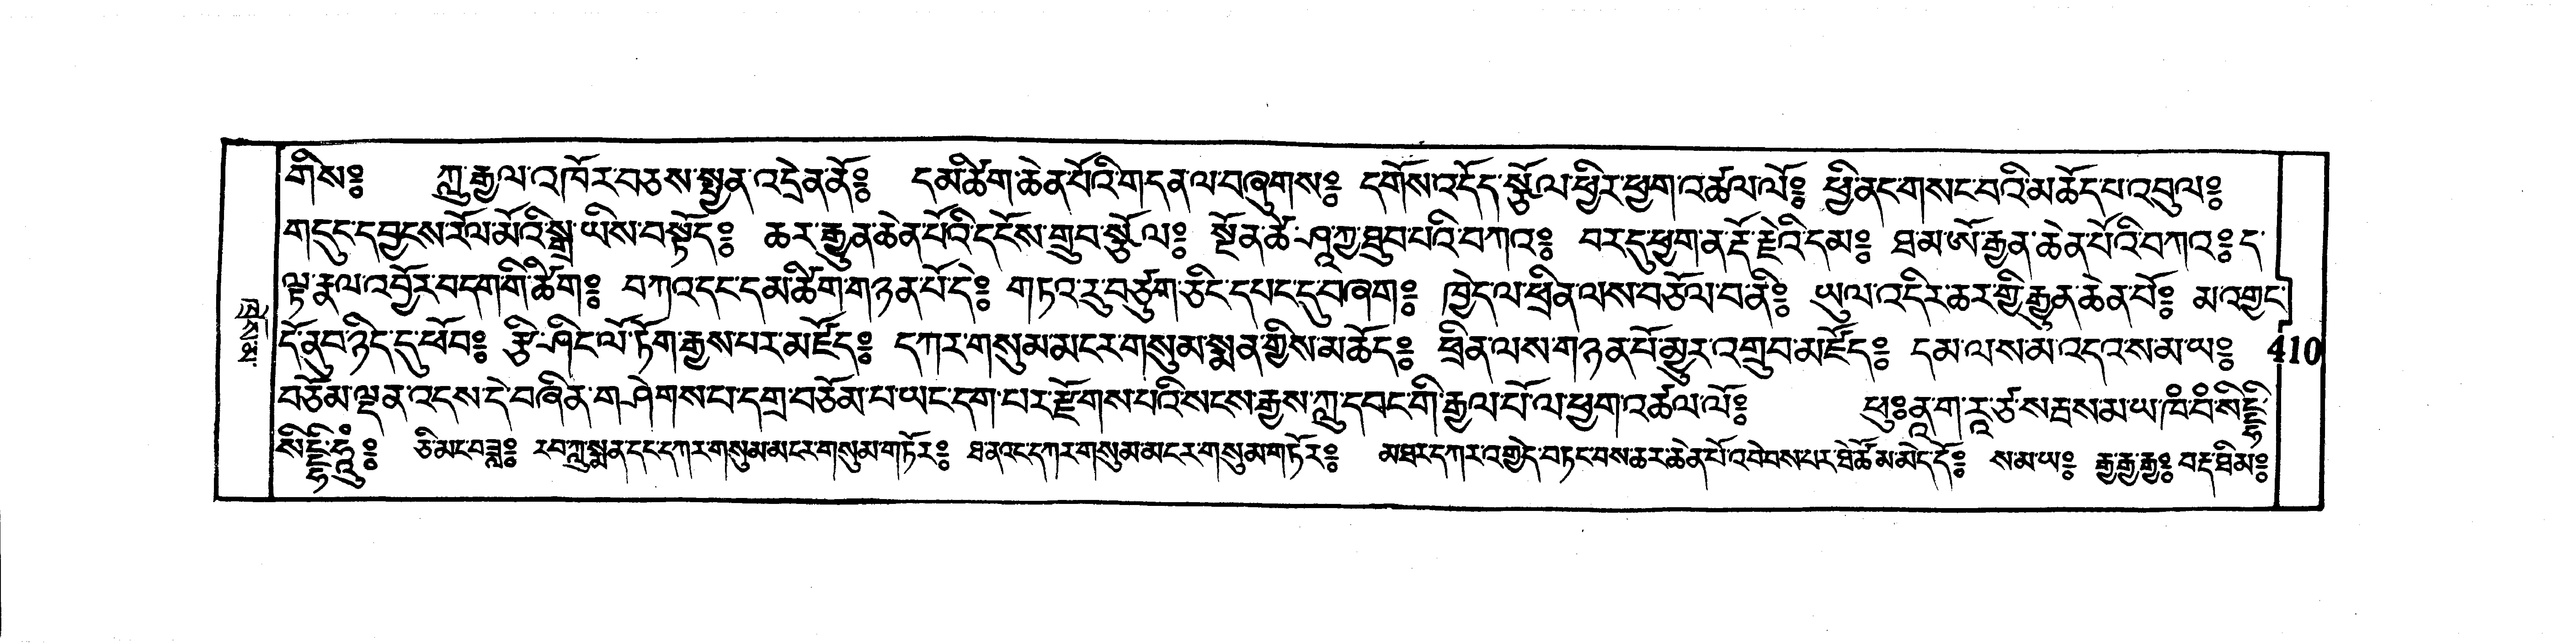 གིས༔ ཀླུ་རྒྱལ་འཁོར་བཅས་སྤྱན་འདྲེན་ནོ༔ དམ་ཚིག་ཆེན་པོའི་གདན་ལ་བཞུགས༔ དགོས་འདོད་སྩོལ་ཕྱིར་ཕྱག་འཚལ་ལོ༔ ཕྱི་ནང་གསང་བའི་མཆོད་པ་འབུལ༔
གདུང་དབྱངས་རོལ་མོའི་སྒྲ་ཡིས་བསྟོད༔ ཆར་རྒྱུན་ཆེན་པོའི་དངོས་གྲུབ་སྩོལ༔ སྔོན་ཚེ་ཤཱཀྱ་ཐུབ་པའི་བཀའ༔ བར་དུ་ཕྱག་ན་རྡོ་རྗེའི་དམ༔ ཐམ་ཨོ་རྒྱན་ཆེན་པོའི་བཀའ༔ ད་
ལྟ་རྣལ་འབྱོར་བདག་གི་ཚིག༔ བཀའ་དང་དམ་ཚིག་གཉན་པོ་དེ༔ གཏའ་རུ་བཙུག་ཅིང་དཔང་དུ་བཞག༔ ཁྱེད་ལ་ཕྲིན་ལས་བཅོལ་བ་ནི༔ ཡུལ་འདིར་ཆར་གྱི་རྒྱུན་ཆེན་པོ༔ མ་འགྱང་
དོ་ནུབ་ཉིད་དུ་ཕོབ༔ རྩི་ཤིང་ལོ་ཏོག་རྒྱས་པར་མཛོད༔ དཀར་གསུམ་མངར་གསུམ་སྨན་གྱིས་མཆོད༔ ཕྲིན་ལས་གཉན་པོ་མྱུར་འགྲུབ་མཛོད༔ དམ་ལས་མ་འདའ་ས་མ་ཡ༔ 410
བཅོམ་ལྡན་འདས་དེ་བཞིན་གཤེགས་པ་དགྲ་བཅོམ་པ་ཡང་དག་པར་རྫོགས་པའི་སངས་རྒྱས་ཀླུ་དབང་གི་རྒྱལ་པོ་ལ་ཕྱག་འཚལ་ལོ༔ ས་མ་ཡ་
སིདྡྷི་ཧཱུྃ༔ ཅི་མང་བཟླ༔ རབ་ཀླུ་སྨན་དང་དཀར་གསུམ་མངར་གསུམ་གཏོར༔ ཐ་ན་འང་དཀར་གསུམ་མངར་གསུམ་གཏོར༔ མཐར་དཀར་འགྱེད་བཏང་བས་ཆར་ཆེན་པོ་འབེབས་པར་ཐེ་ཚོམ་མེད་དོ༔ ས་མ་ཡ༔ རྒྱ་རྒྱ་རྒྱ༔ བརྡ་ཐིམ༔